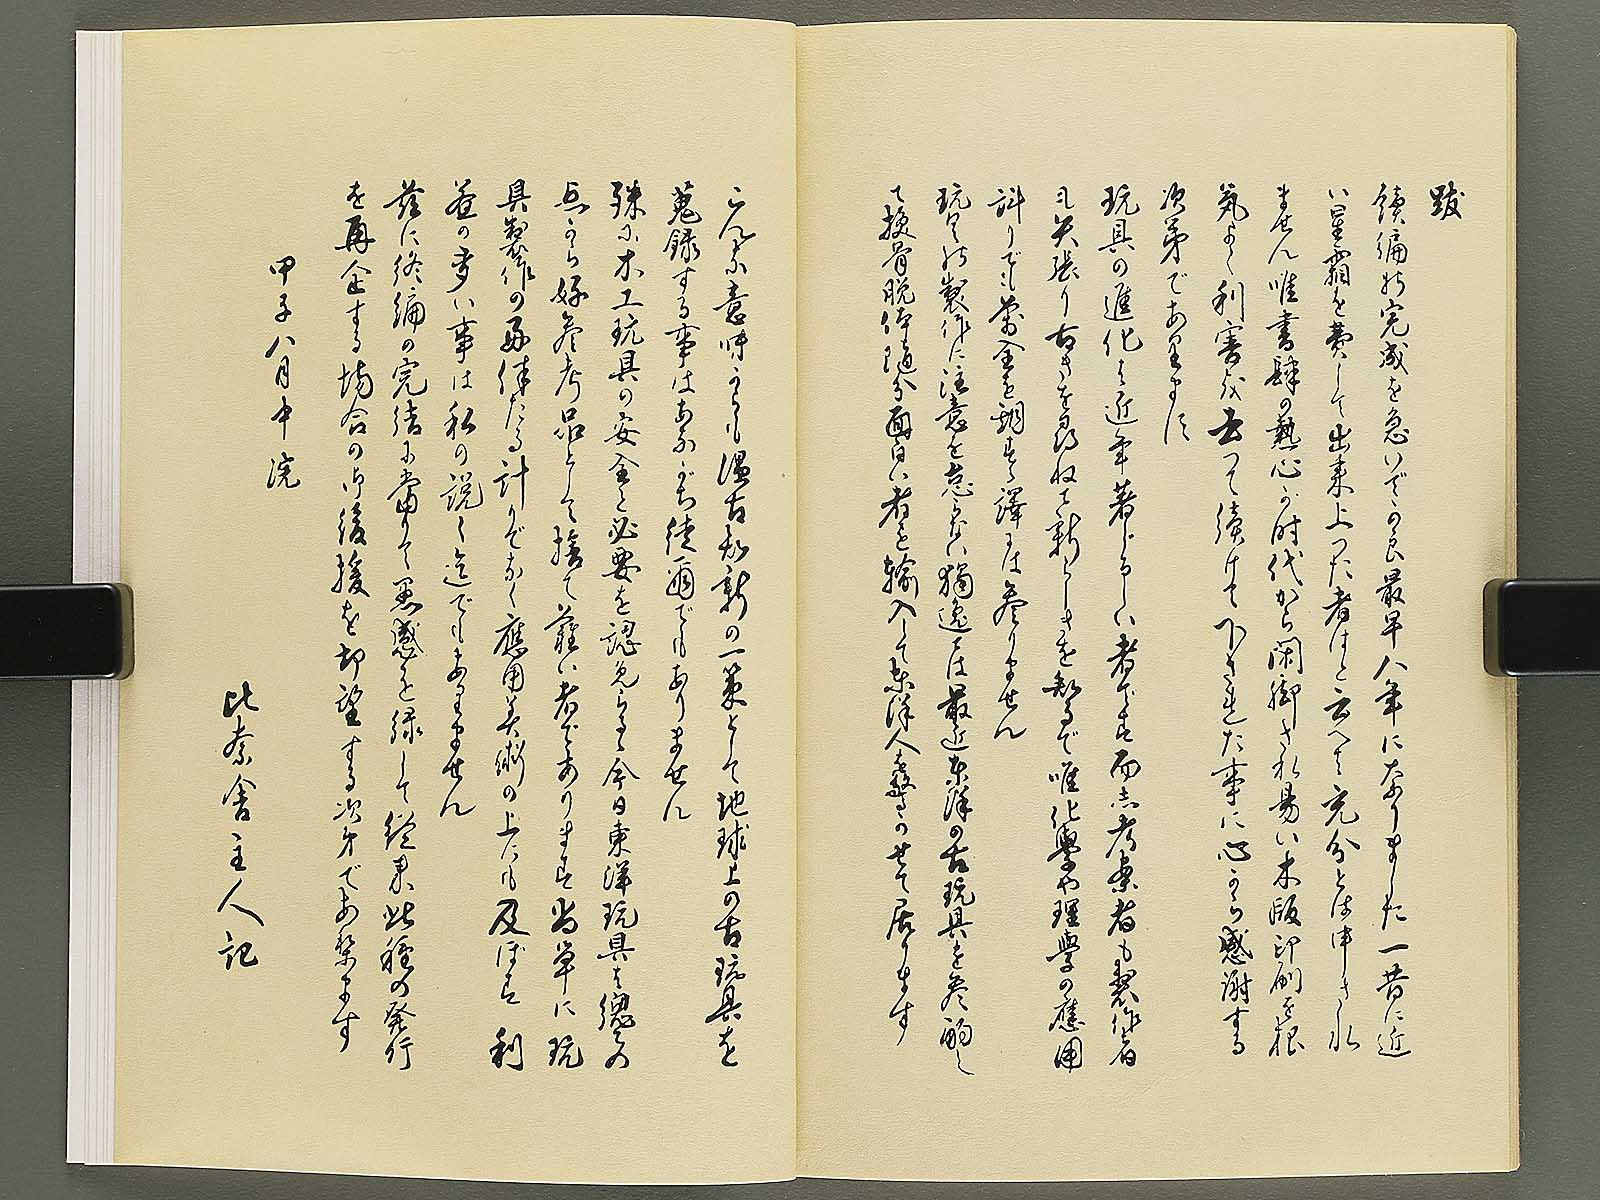 跋
續編の完成を急いでの良最早八年になりました一昔に近
い星霜を費して出来上つた者はと云へて充分とは申され
ません唯書肆の熱心が時代から閑却され易い木版印刷を根
気よく利害を去つて續けて下された事に心から感謝する
次第であります
玩具の進化は近年著しい者です而し考案者も製作者
も矢張り古きを尋ねて新らしきを知るで唯化學や理學の應用
計りでも萬全を期する譯には参りません
玩具の製作に注意を怠らない獨逸では最近東洋の古玩具を参酌し
て換骨脱体随分面白い者を輸入して東洋人を驚かせて居ります
こんな意味からも温古知新の一策として地球上の古玩具を
蒐録する事はあながち徒爾でもありません
殊に木工玩具の安全と必要を認めらるゝ今日東洋玩具は總ての
点から好参考品として捨て難い者であります尚単に玩
具製作の具体たる計りでなく應用美術の上にも及ぼす利
益の多い事は私の説く迄でもありません
茲に終編の完結に當りて愚感を録して従来此種の発行
を再企する場合の御後援を切望する次第であります
甲子八月中浣
比奈舎主人記